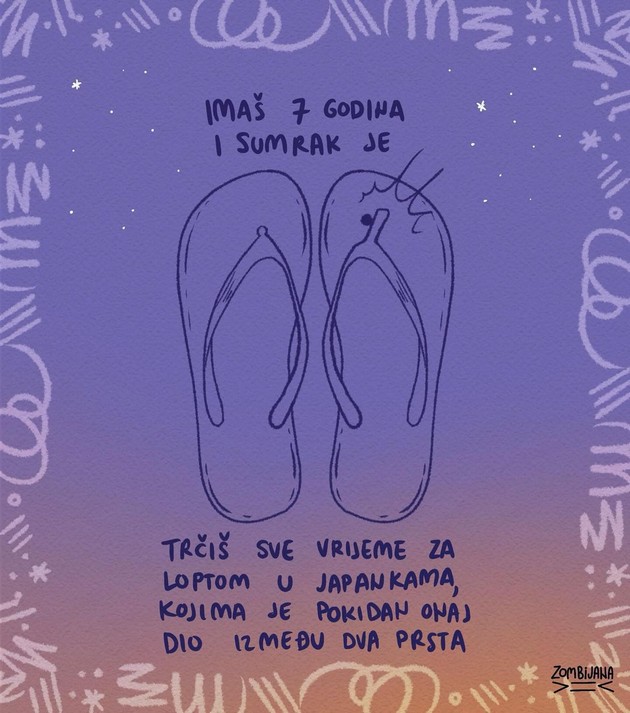 IMAŠ 7 GODINA
I SUMRAK JE
TRČIŠ SVE VRIJEME ZA
LOPTOM U JAPANKAMA,
KOJIMA JE POKIDAN ONAJ
DIO IZMEĐU DVA PRSTA
ZOMBIJANA